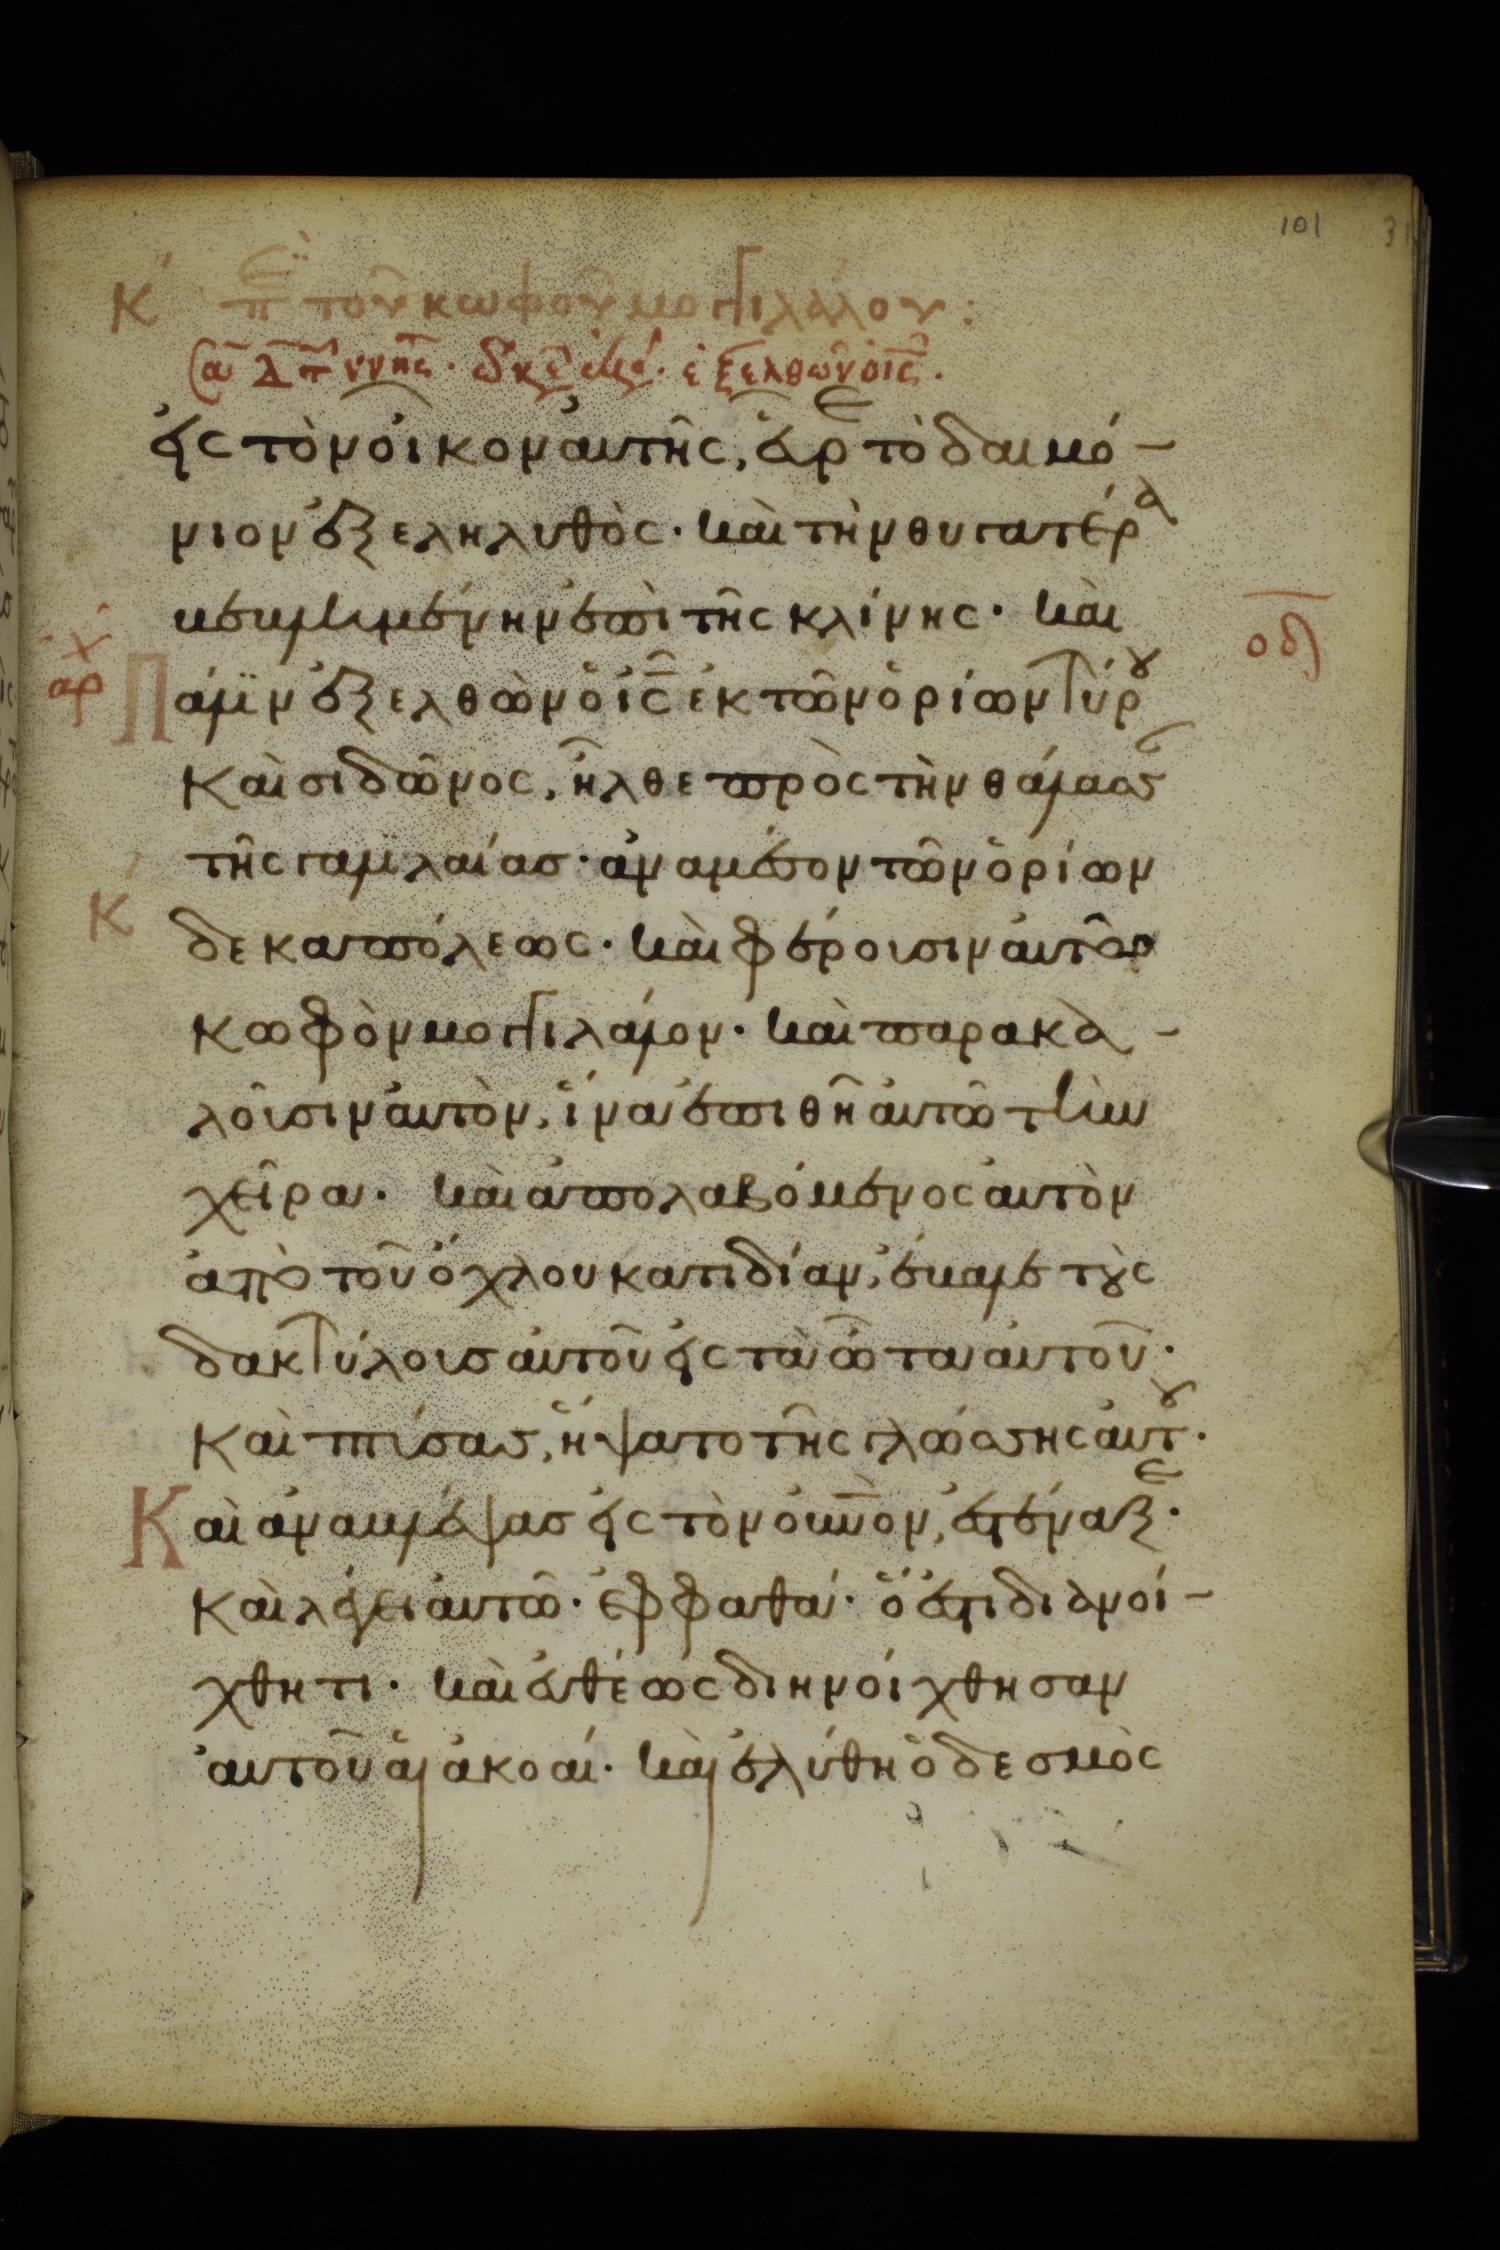 101
Κ΄ περὶ τοῦ κωφοῦ μογγιλάλου:
ἐξελθὼν ὁ ις.
εἰς τὸν οἶκον αὐτῆς, εὗρε τὸ δαιμό-
νιον ἐξεληλυθὸς· καὶ τὴν θυγατέρα
κεκλιμένην ἐπὶ τῆς κλίνης· καὶ
οδ
αρχ Πάλϊν ἐξελθὼν ὁ ις ἐκ τῶν ὁρίων Τύρου
Καὶ σιδῶνος, ἦλθε πρὸς τὴν θάλασσαν
τῆς γαλϊλαίας· ἀναμέσον τῶν ὁρίων
Κ΄ δεκαπόλεως· καὶ φέρουσιν αὐτῶ
κωφὸν μογγιλάλον· καὶ παρακα-
λοῦσιν αὐτὸν, ἵνα ἐπιθῆ αὐτῶ τὴν
χεῖρα· καὶ ἀπολαβόμενος αὐτὸν
ἀπὸ τοῦ ὄχλου κατιδίαν, ἔβαλε τοὺς
δακτύλους αὐτοῦ εἰς τὰ ὦτα αὐτοῦ·
Καὶ πτύσας, ἥψατο τῆς γλώσσης αὐτοῦ·
Καὶ ἀναβλέψας εἰς τὸν οὐνὸν, ἐστέναξε·
Καὶ λέγει αὐτῶ· ἐφφαθά· ὅ ἐστι διανοί-
χθητι· καὶ εὐθέως διηνοίχθησαν
αὐτοῦ αἱ ἀκοαί· καὶ ἐλύθη ὁ δεσμὸς